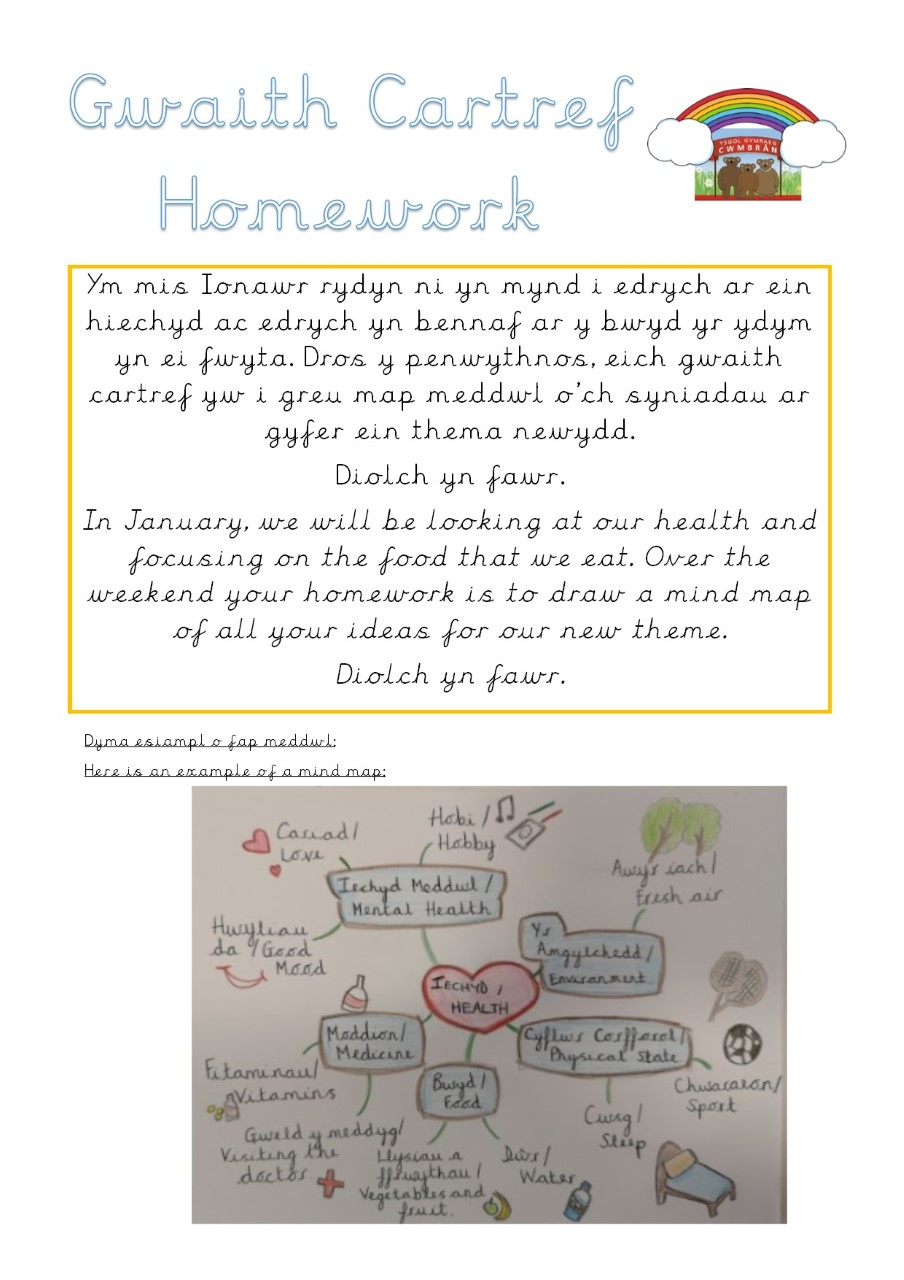 Gwaith Cartref
Homework
YSGOL GYMRAEG
CWMBRÂN
Ym mis Ionawr rydyn ni yn mynd i edrych ar ein
hiechyd ac edrych yn bennaf ar y bwyd yr ydym
yn ei fwyta. Dros y penwythnos, eich gwaith
cartref yw i greu map meddwl o'ch syniadau ar
gyfer ein thema newydd.
Diolch yn fawr.
In January, we will be looking at our health and
focusing on the food that we eat. Over the
weekend your homework is to draw a mind map
of all your ideas for our new theme.
Diolch yn fawr.
Dyma esiampl o fap meddwl:
Here is an example of a mind map:
Cariad/
Love
Hobi /
Hobby
Iechyd Meddwl /
Mental Health
Awyr iach/
Fresh air
Hwyliau
da / Good
Mood
Yr
Amgylchedd/
Environment
IECHYD /
HEALTH
Moddion/
Medicine
Cyflwr Corfforol/
Physical State
Fitaminau/
Vitamins
Bwyd/
Food
Chwaraeon/
Sport
Gweld y meddyg/
Visiting the
doctor
Llysiau a
ffrwythau /
Vegetables and
fruit.
Dŵr/
Water
Cwsg/
Sleep